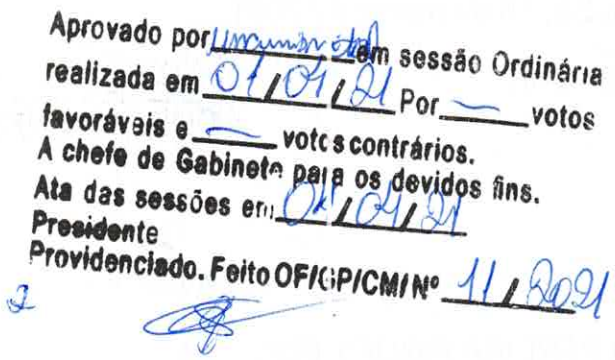 Aprovado por unanimidade em sessão Ordinária
realizada em 01/04/21 Por — votos
favoráveis e — votos contrários.
A chefe de Gabinete para os devidos fins.
Ata das sessões em 01/04/21
Presidente
Providenciado. Feito OF/GP/CM/Nº 11/2021